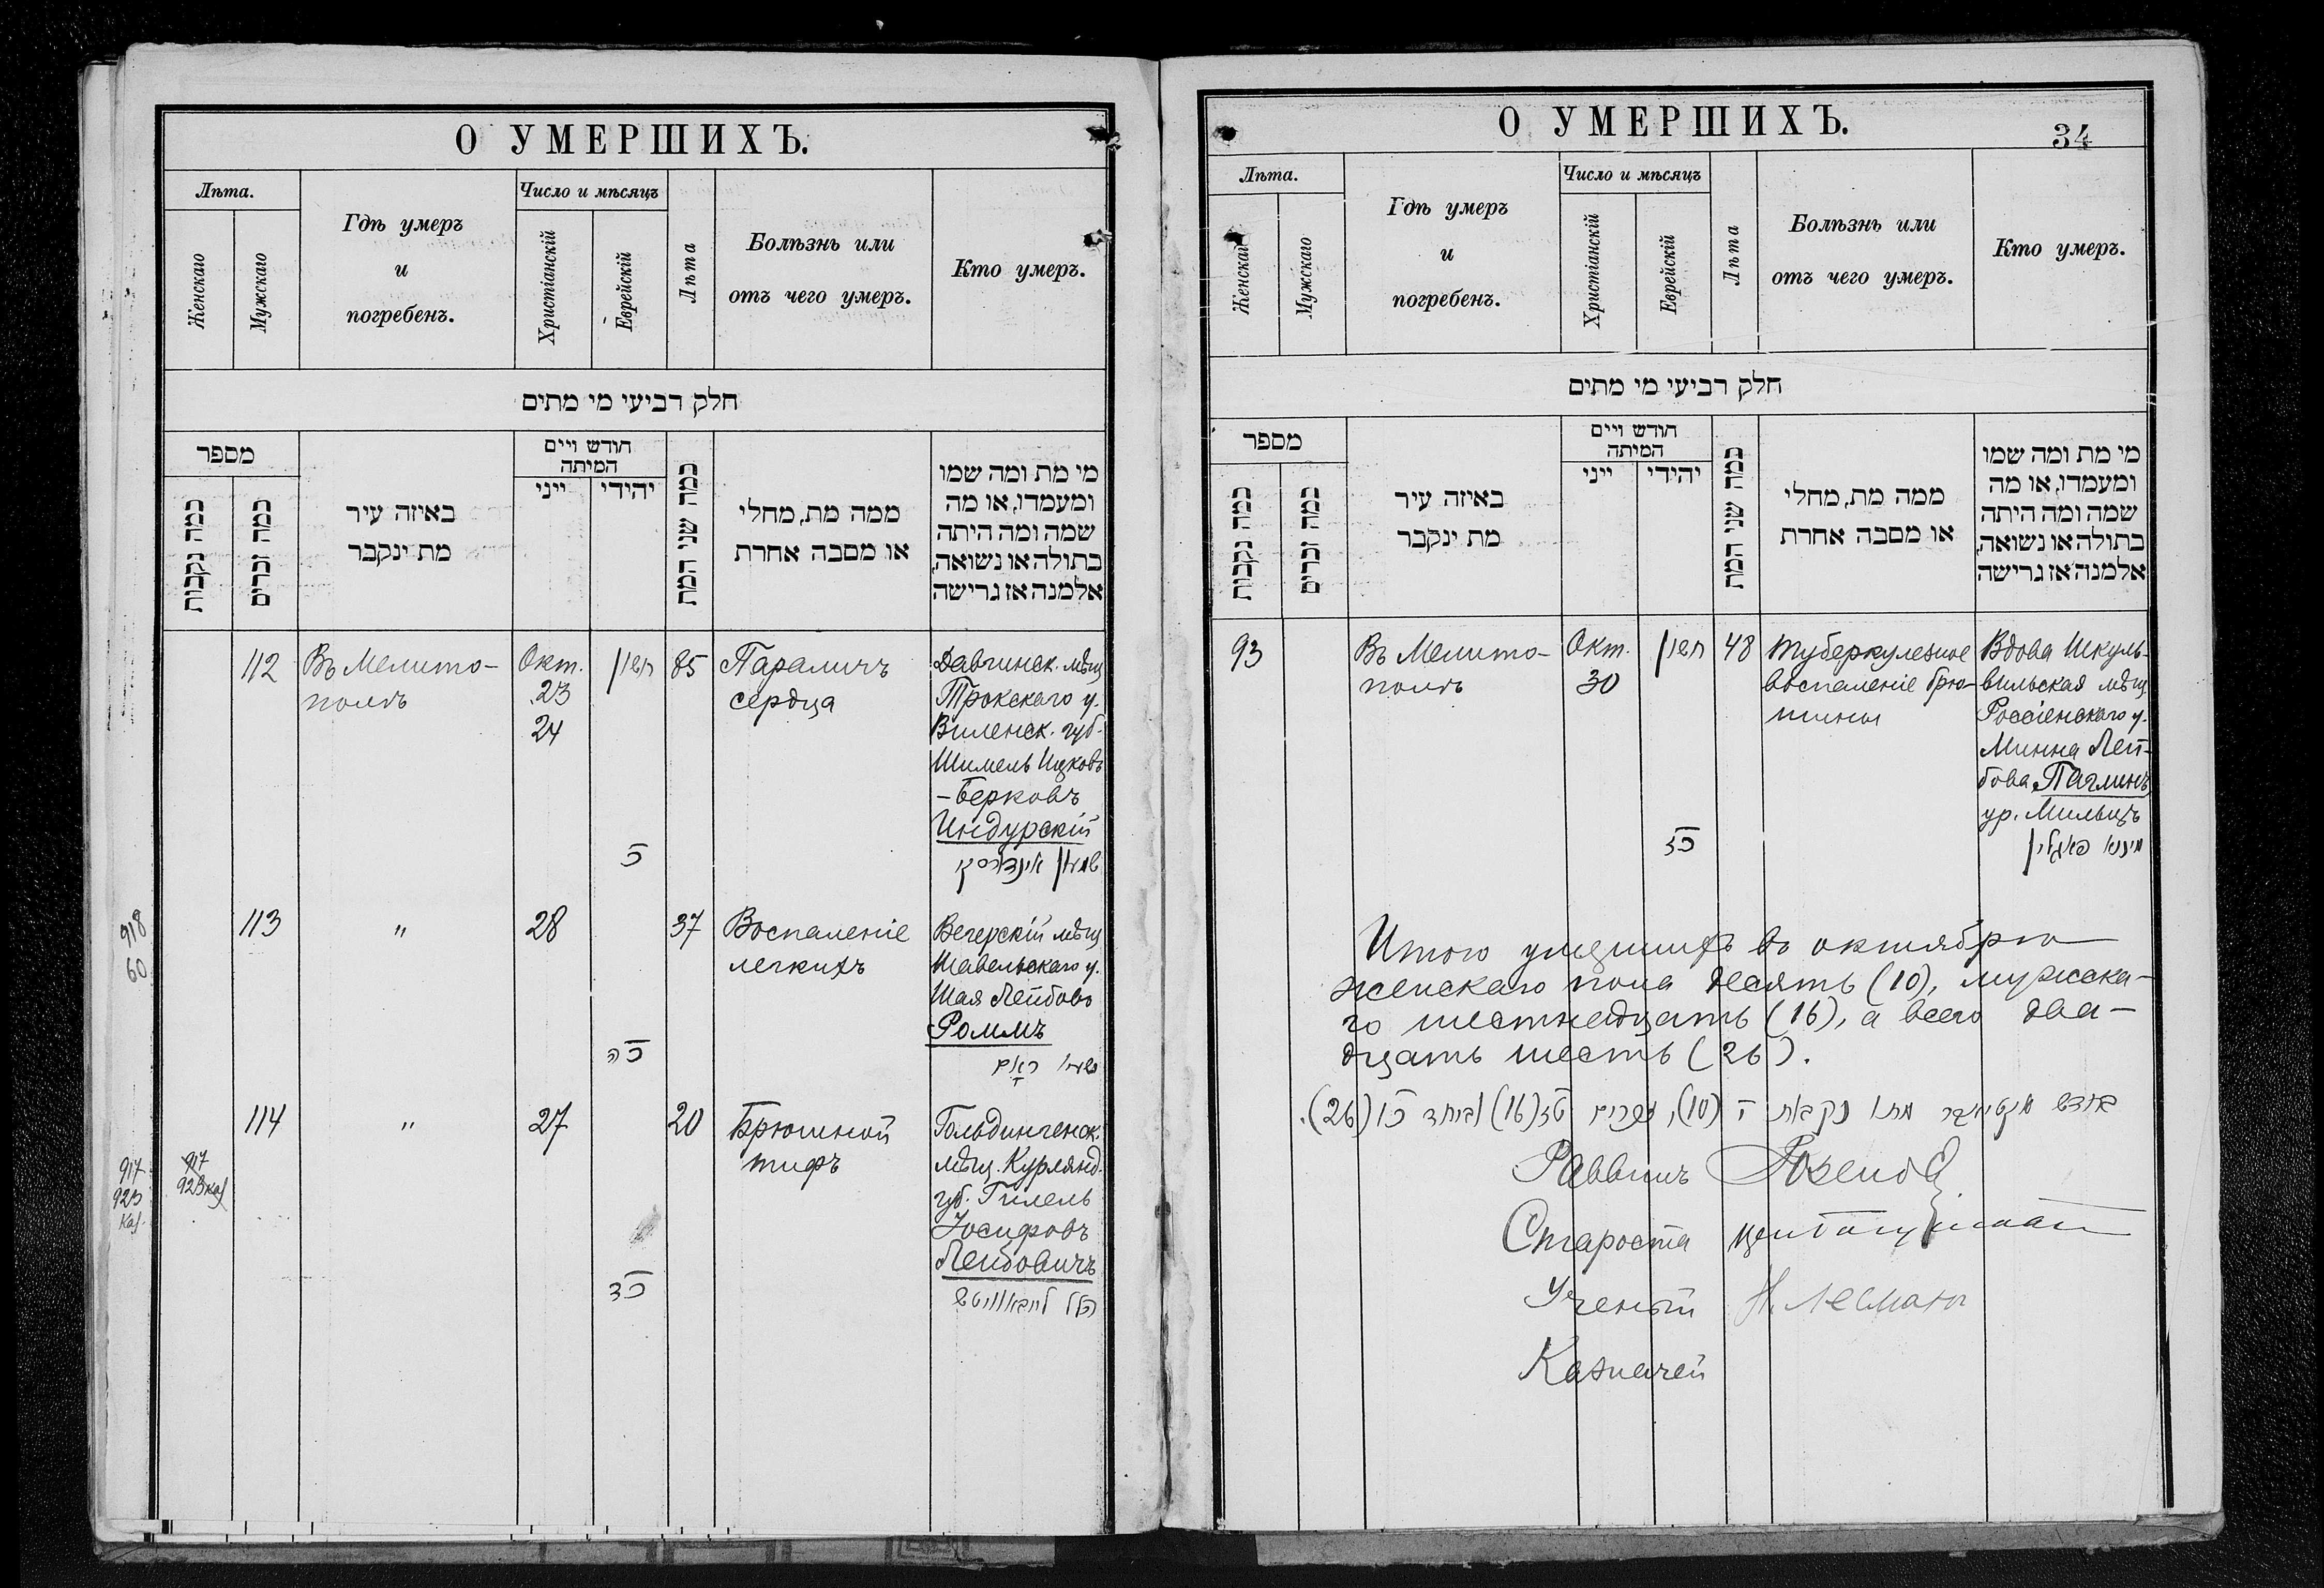 О УМЕРШИХЪ.
Лѣта.
Женскаго
Мужскаго
Гдѣ умеръ
и
погребенъ.
Число и мѣсяцъ
Христіанскій
Еврейскій
Лѣта
Болѣзнь или
отъ чего умеръ.
Кто умеръ.
חלק רביעי מי מתים
מספר
כמה נקבות
כמה זכרים
באיזה עיר
מת ינקבר
חודש ויים
המיתה
ייני
יהודי
כמה שני המת
ממה מת, מחלי
או מסבה אחרת
מי מת ומה שמו
ומעמדו, או מה
שמה ומה היתה
בתולה או נשואה,
אלמנה אז גרישה
112
Въ Мелито-
полѣ
Окт.
23
24
חשון
כ
85
Параличъ
сердца
Давгинск. мѣщ
Трокскаго у.
Виленск. губ.
Шимель Ицковъ
-Берковъ
Индурскій
918
60
113
"
28
כה
37
Воспаленіе
легкихъ
Вегерскій мѣщ
Шавельскаго у.
Шая Лейбовъ
Роммъ
ראם
917
923
каз
917
923 каз
114
"
27
כד
20
Брюшной
тифъ
Гольдингенск.
мѣщ. Курлянд.
губ. Гилель
Іосифовъ
Лейбовичъ
הלל לייבאוויטש
О УМЕРШИХЪ.
34
Лѣта.
Женскаго
Мужскаго
Гдѣ умеръ
и
погребенъ.
Число и мѣсяцъ
Христіанскій
Еврейскій
Лѣта
Болѣзнь или
отъ чего умеръ.
Кто умеръ.
חלק רביעי מי מתים
מספר
כמה נקבות
כמה זכרים
באיזה עיר
מת ינקבר
חודש ויים
המיתה
ייני
יהודי
כמה שני המת
ממה מת, מחלי
או מסבה אחרת
מי מת ומה שמו
ומעמדו, או מה
שמה ומה היתה
בתולה או נשואה,
אלמנה אז גרישה
93
Въ Мелито-
полѣ
Окт.
30
חשון
48
Туберкулезное
воспаленіе брю-
шины
Вдова Шкуль-
вильская мѣщ.
Россіенскаго у.
Минна Лей-
бова Паглинъ
ур. Мильцъ
מינא פאגלין
Итого умершихъ въ октябрѣ
женскаго пола десять (10), мужска-
го шестнадцать (16), а всего два-
дцать шесть (26).
מתו נקבות י (10), זכרים טז (16) וביחד כו (26).
Раввинъ
Староста
Ученый
Казначей